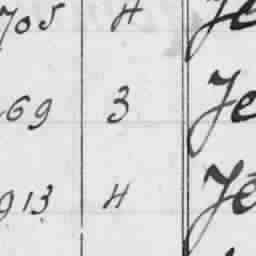 705 4 Je
69 3 Je
913 4 Je